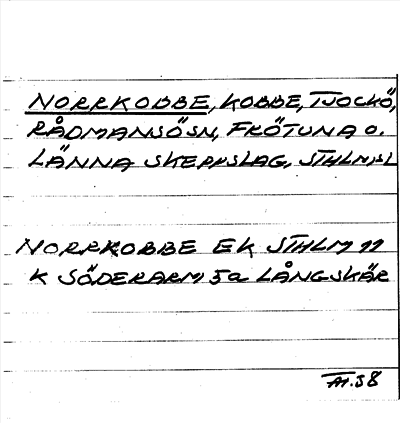 NORRKOBBE, KOBBE, TJOCKÖ,
RÅDMANSÖSN, FRÖTUNA O.
LÄNNA SKEPPSLAG, STHLMSL
NORRKOBBE EK STHLM 11
K SÖDERARM 5a LÅNGSKÄR